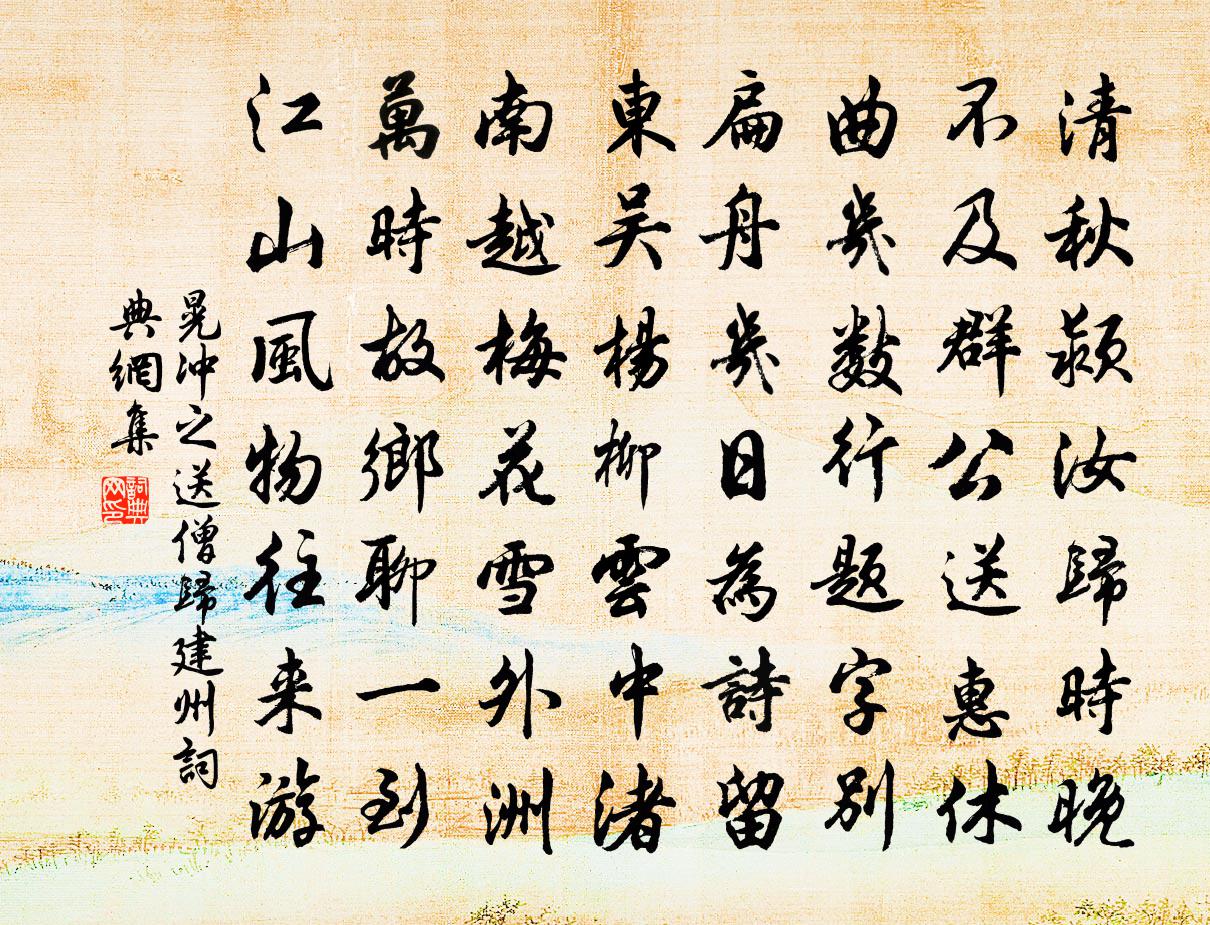 清秋潁汝歸時晚
不及群公送惠休
曲幾數行題字別
扁舟幾日為詩留
東吳楊柳雲中渚
南越梅花雪外洲
萬時故鄉聊一到
江山風物往来游
晁沖之送僧歸建州詞
典網集
詞典网印